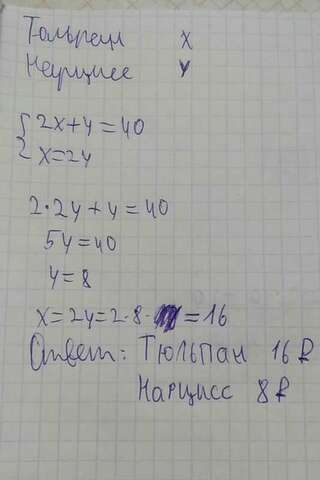 Тюльпан x
Нарцисс y
{ 2x+y=40
x=2y
2·2y+y=40
5y=40
y=8
x=2y=2·8=16
Ответ: Тюльпан 16₽
Нарцисс 8₽